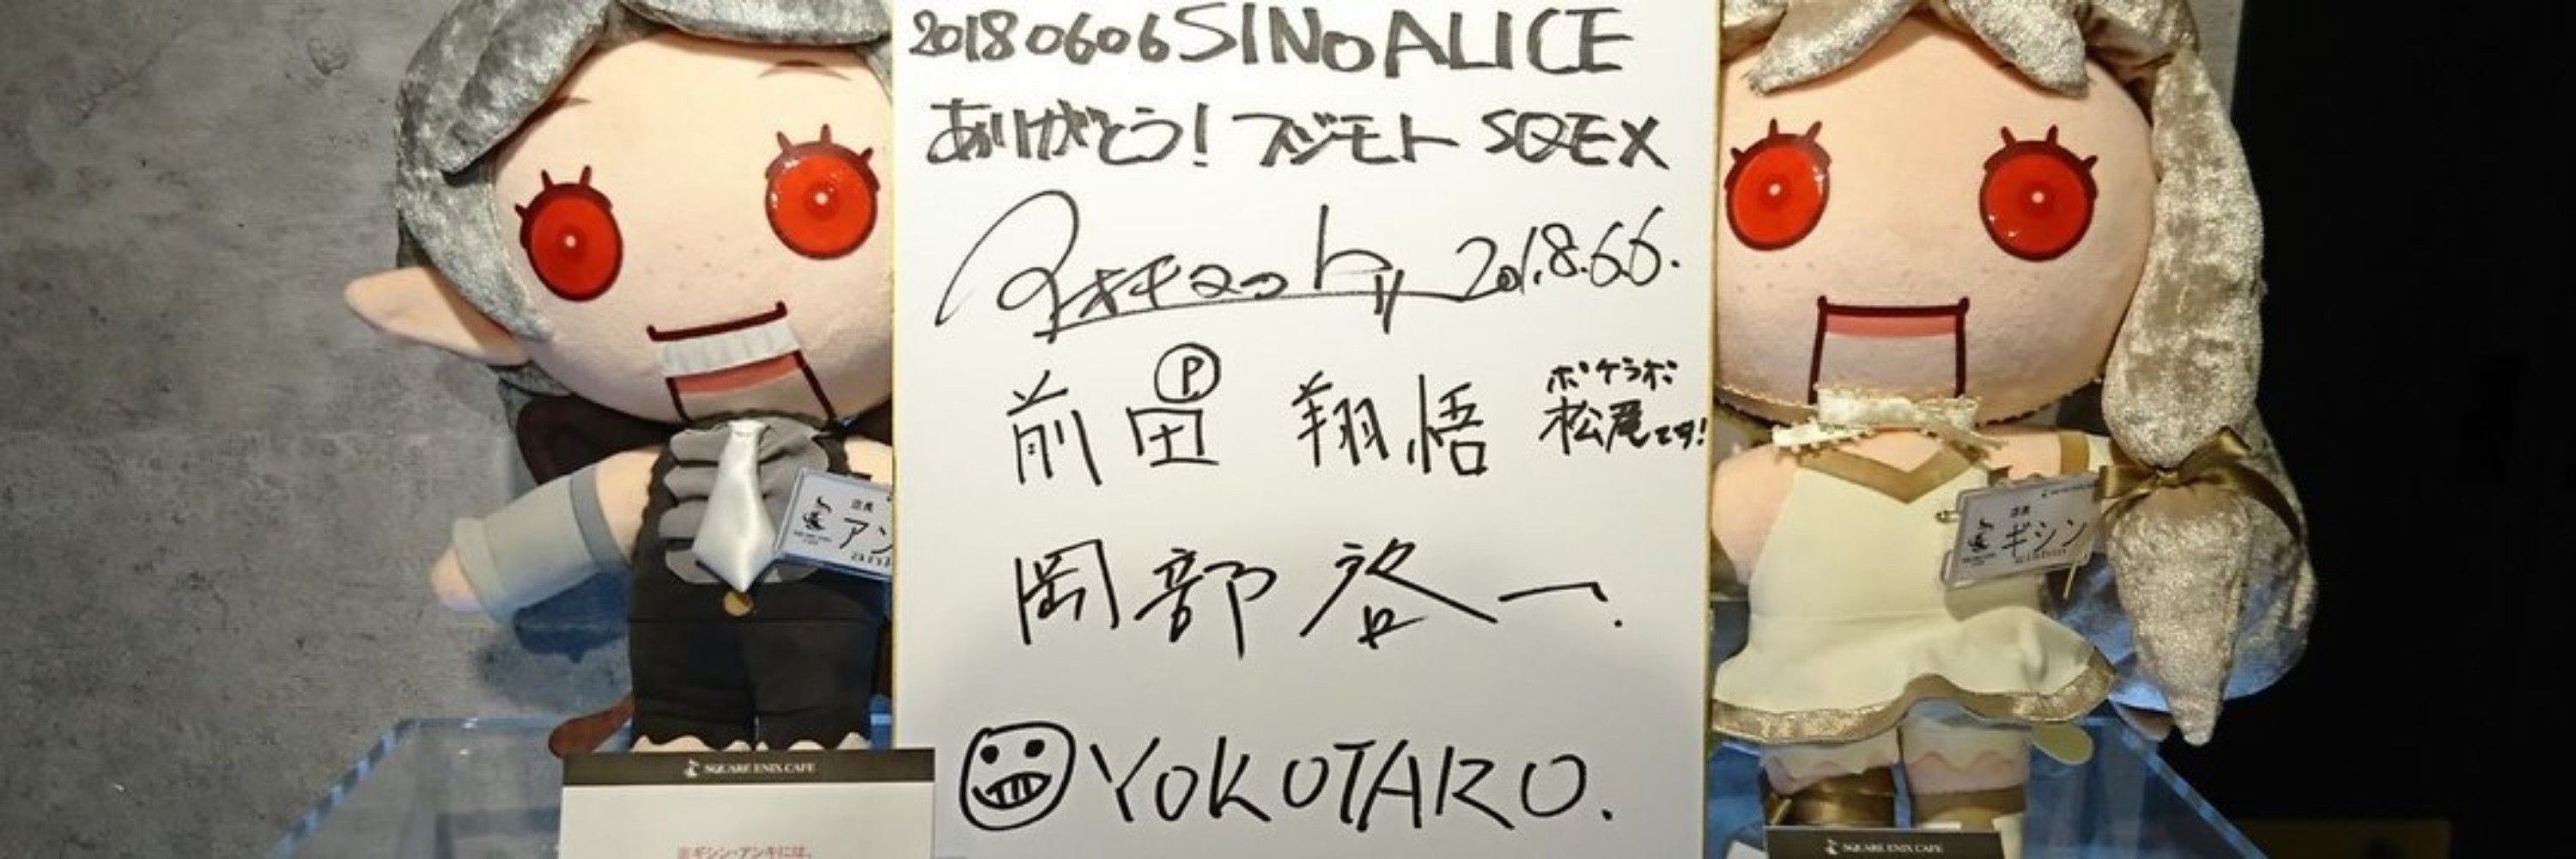 20180606 SINoALICE
ありがとう! フジモト SQEX
2018.6.6.
P
前田 翔悟
ポケラボ
松尾です!
岡部 啓一.
YOKOTARO.
店長
アン
店長
ギシン
SQUARE ENIX CAFE
※ギシン・アンキには、
SQUARE ENIX CAFE